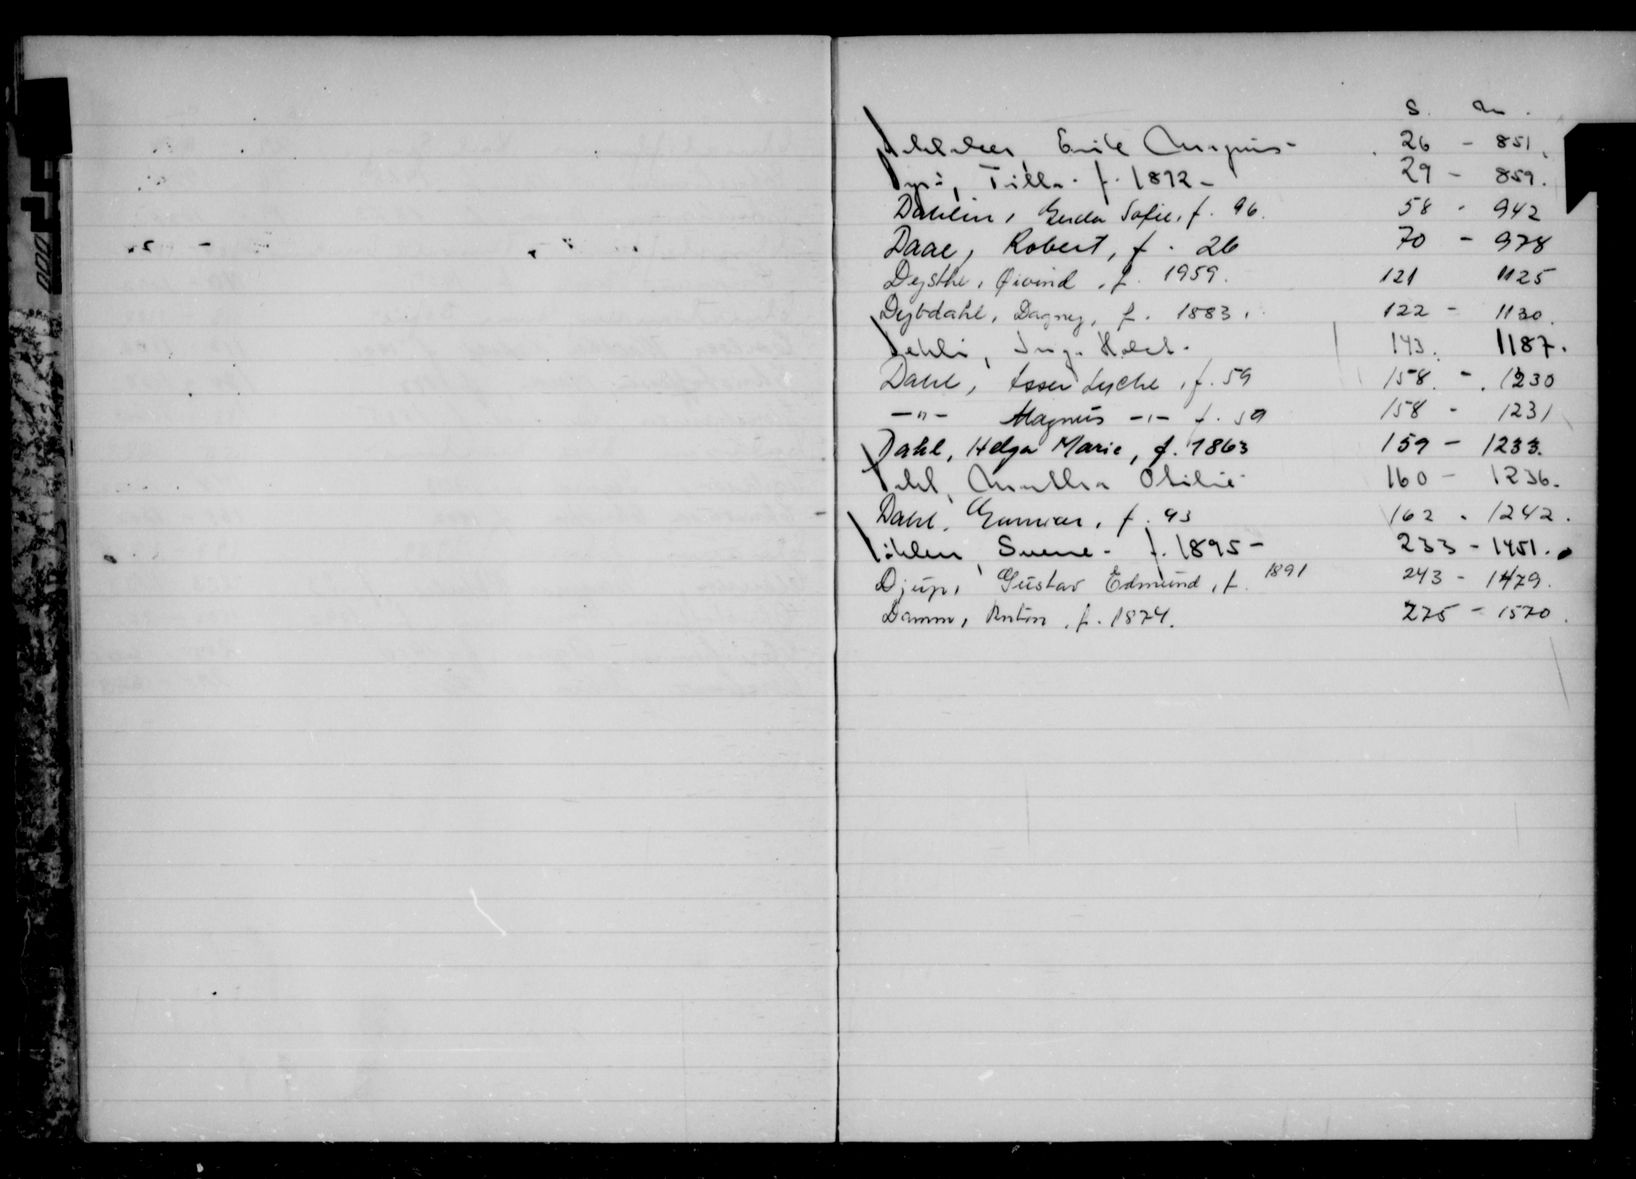 S. nr.
Emil Magnus - 26 - 851.
Tilla. f. 1892 - 29 - 859.
Dahlin, Gerda Sofie, f. 96. 58 - 942
Daae, Robert, f. 26 70 - 978
Dysthe, Øivind, f. 1959. 121 1125
Dybdahl, Dagny, f. 1883. 122 - 1130.
Dehli, Inga 143. 1187.
Dahl, Lyche, f. 59 158. - 1230
-"- Magnus -"- f. 59 158 - 1231
Dahl, Helga Marie, f. 1863 159 - 1233.
Dahl, Martha Otilie 160 - 1236.
Dahl, Gunnar, f. 93 162 - 1242.
Døhlen, Sverre - f. 1895 - 233 - 1451.
Djup, Gustav Edmund, f. 1891 243 - 1479.
Damm, Anton, f. 1874. 275 - 1570.